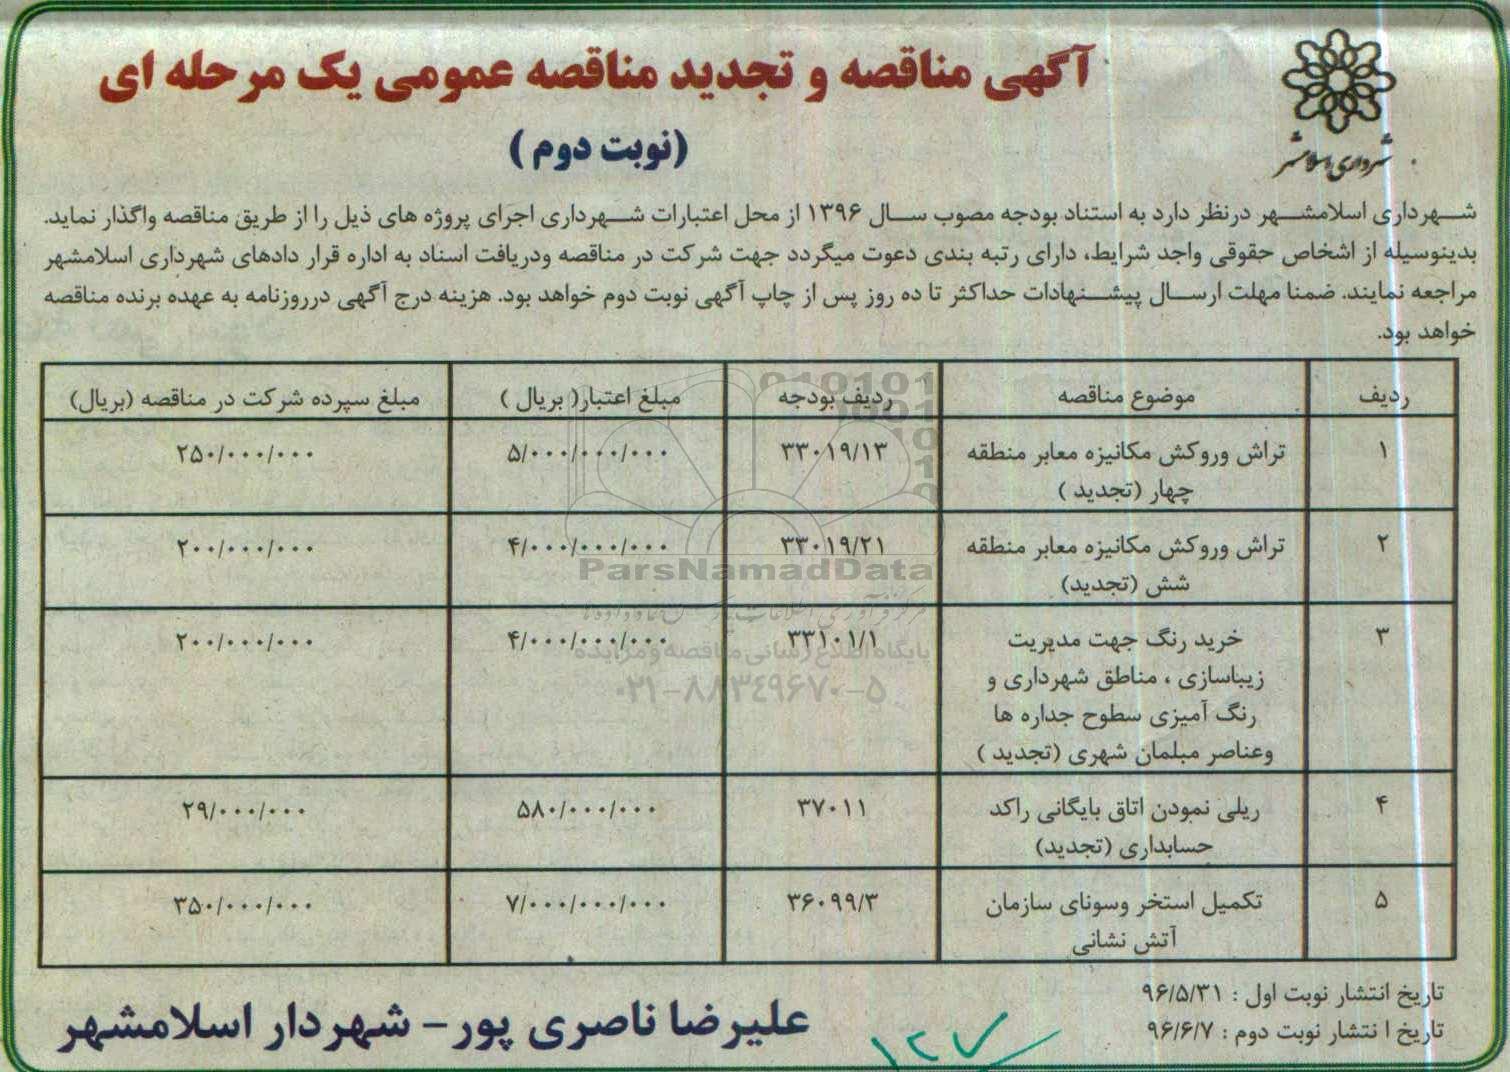 آگهی مناقصه و تجدید مناقصه عمومی یک مرحله ای
(نوبت دوم )
شهرداری اسلامشهر
شهرداری اسلامشهر درنظر دارد به استناد بودجه مصوب سال ۱۳۹۶ از محل اعتبارات شهرداری اجرای پروژه های ذیل را از طریق مناقصه واگذار نماید.
بدینوسیله از اشخاص حقوقی واجد شرایط، دارای رتبه بندی دعوت میگردد جهت شرکت در مناقصه ودریافت اسناد به اداره قرار دادهای شهرداری اسلامشهر
مراجعه نمایند. ضمنا مهلت ارسال پیشنهادات حداکثر تا ده روز پس از چاپ آگهی نوبت دوم خواهد بود. هزینه درج آگهی درروزنامه به عهده برنده مناقصه
خواهد بود.
ردیف موضوع مناقصه ردیف بودجه مبلغ اعتبار( بریال ) مبلغ سپرده شرکت در مناقصه (بریال)
۱ تراش وروکش مکانیزه معابر منطقه ۳۳۰۱۹/۱۳ ۵/۰۰۰/۰۰۰/۰۰۰ ۲۵۰/۰۰۰/۰۰۰
چهار (تجدید )
۲ تراش وروکش مکانیزه معابر منطقه ۳۳۰۱۹/۲۱ ۴/۰۰۰/۰۰۰/۰۰۰ ۲۰۰/۰۰۰/۰۰۰
شش (تجدید)
۳ خرید رنگ جهت مدیریت ۳۳۱۰۱/۱ ۴/۰۰۰/۰۰۰/۰۰۰ ۲۰۰/۰۰۰/۰۰۰
زیباسازی ، مناطق شهرداری و
رنگ آمیزی سطوح جداره ها
وعناصر مبلمان شهری (تجدید )
۴ ریلی نمودن اتاق بایگانی راکد ۳۷۰۱۱ ۵۸۰/۰۰۰/۰۰۰ ۲۹/۰۰۰/۰۰۰
حسابداری (تجدید)
۵ تکمیل استخر وسونای سازمان ۳۶۰۹۹/۳ ۷/۰۰۰/۰۰۰/۰۰۰ ۳۵۰/۰۰۰/۰۰۰
آتش نشانی
ParsNamadData
پایگاه اطلاع رسانی مناقصه و مزایده
۰۲۱-۸۸۳۴۹۶۷۰-۵
تاریخ انتشار نوبت اول : ۹۶/۵/۳۱
تاریخ ا نتشار نوبت دوم : ۹۶/۶/۷
علیرضا ناصری پور- شهردار اسلامشهر